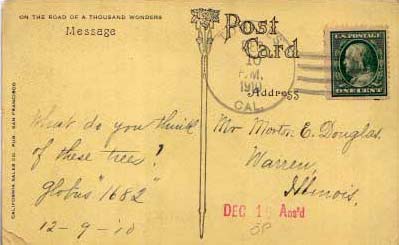 ON THE ROAD OF A THOUSAND WONDERS
Message
Post
Card
Address
10
P.M.
1910
CAL.
U.S. POSTAGE
ONE CENT
CALIFORNIA SALES CO. PUB. SAN FRANCISCO
What do you think
of these trees?
globus "1682"
12-9-10
Mr Morton E. Douglas.
Warren,
Illinois.
DEC 1 Ans'd